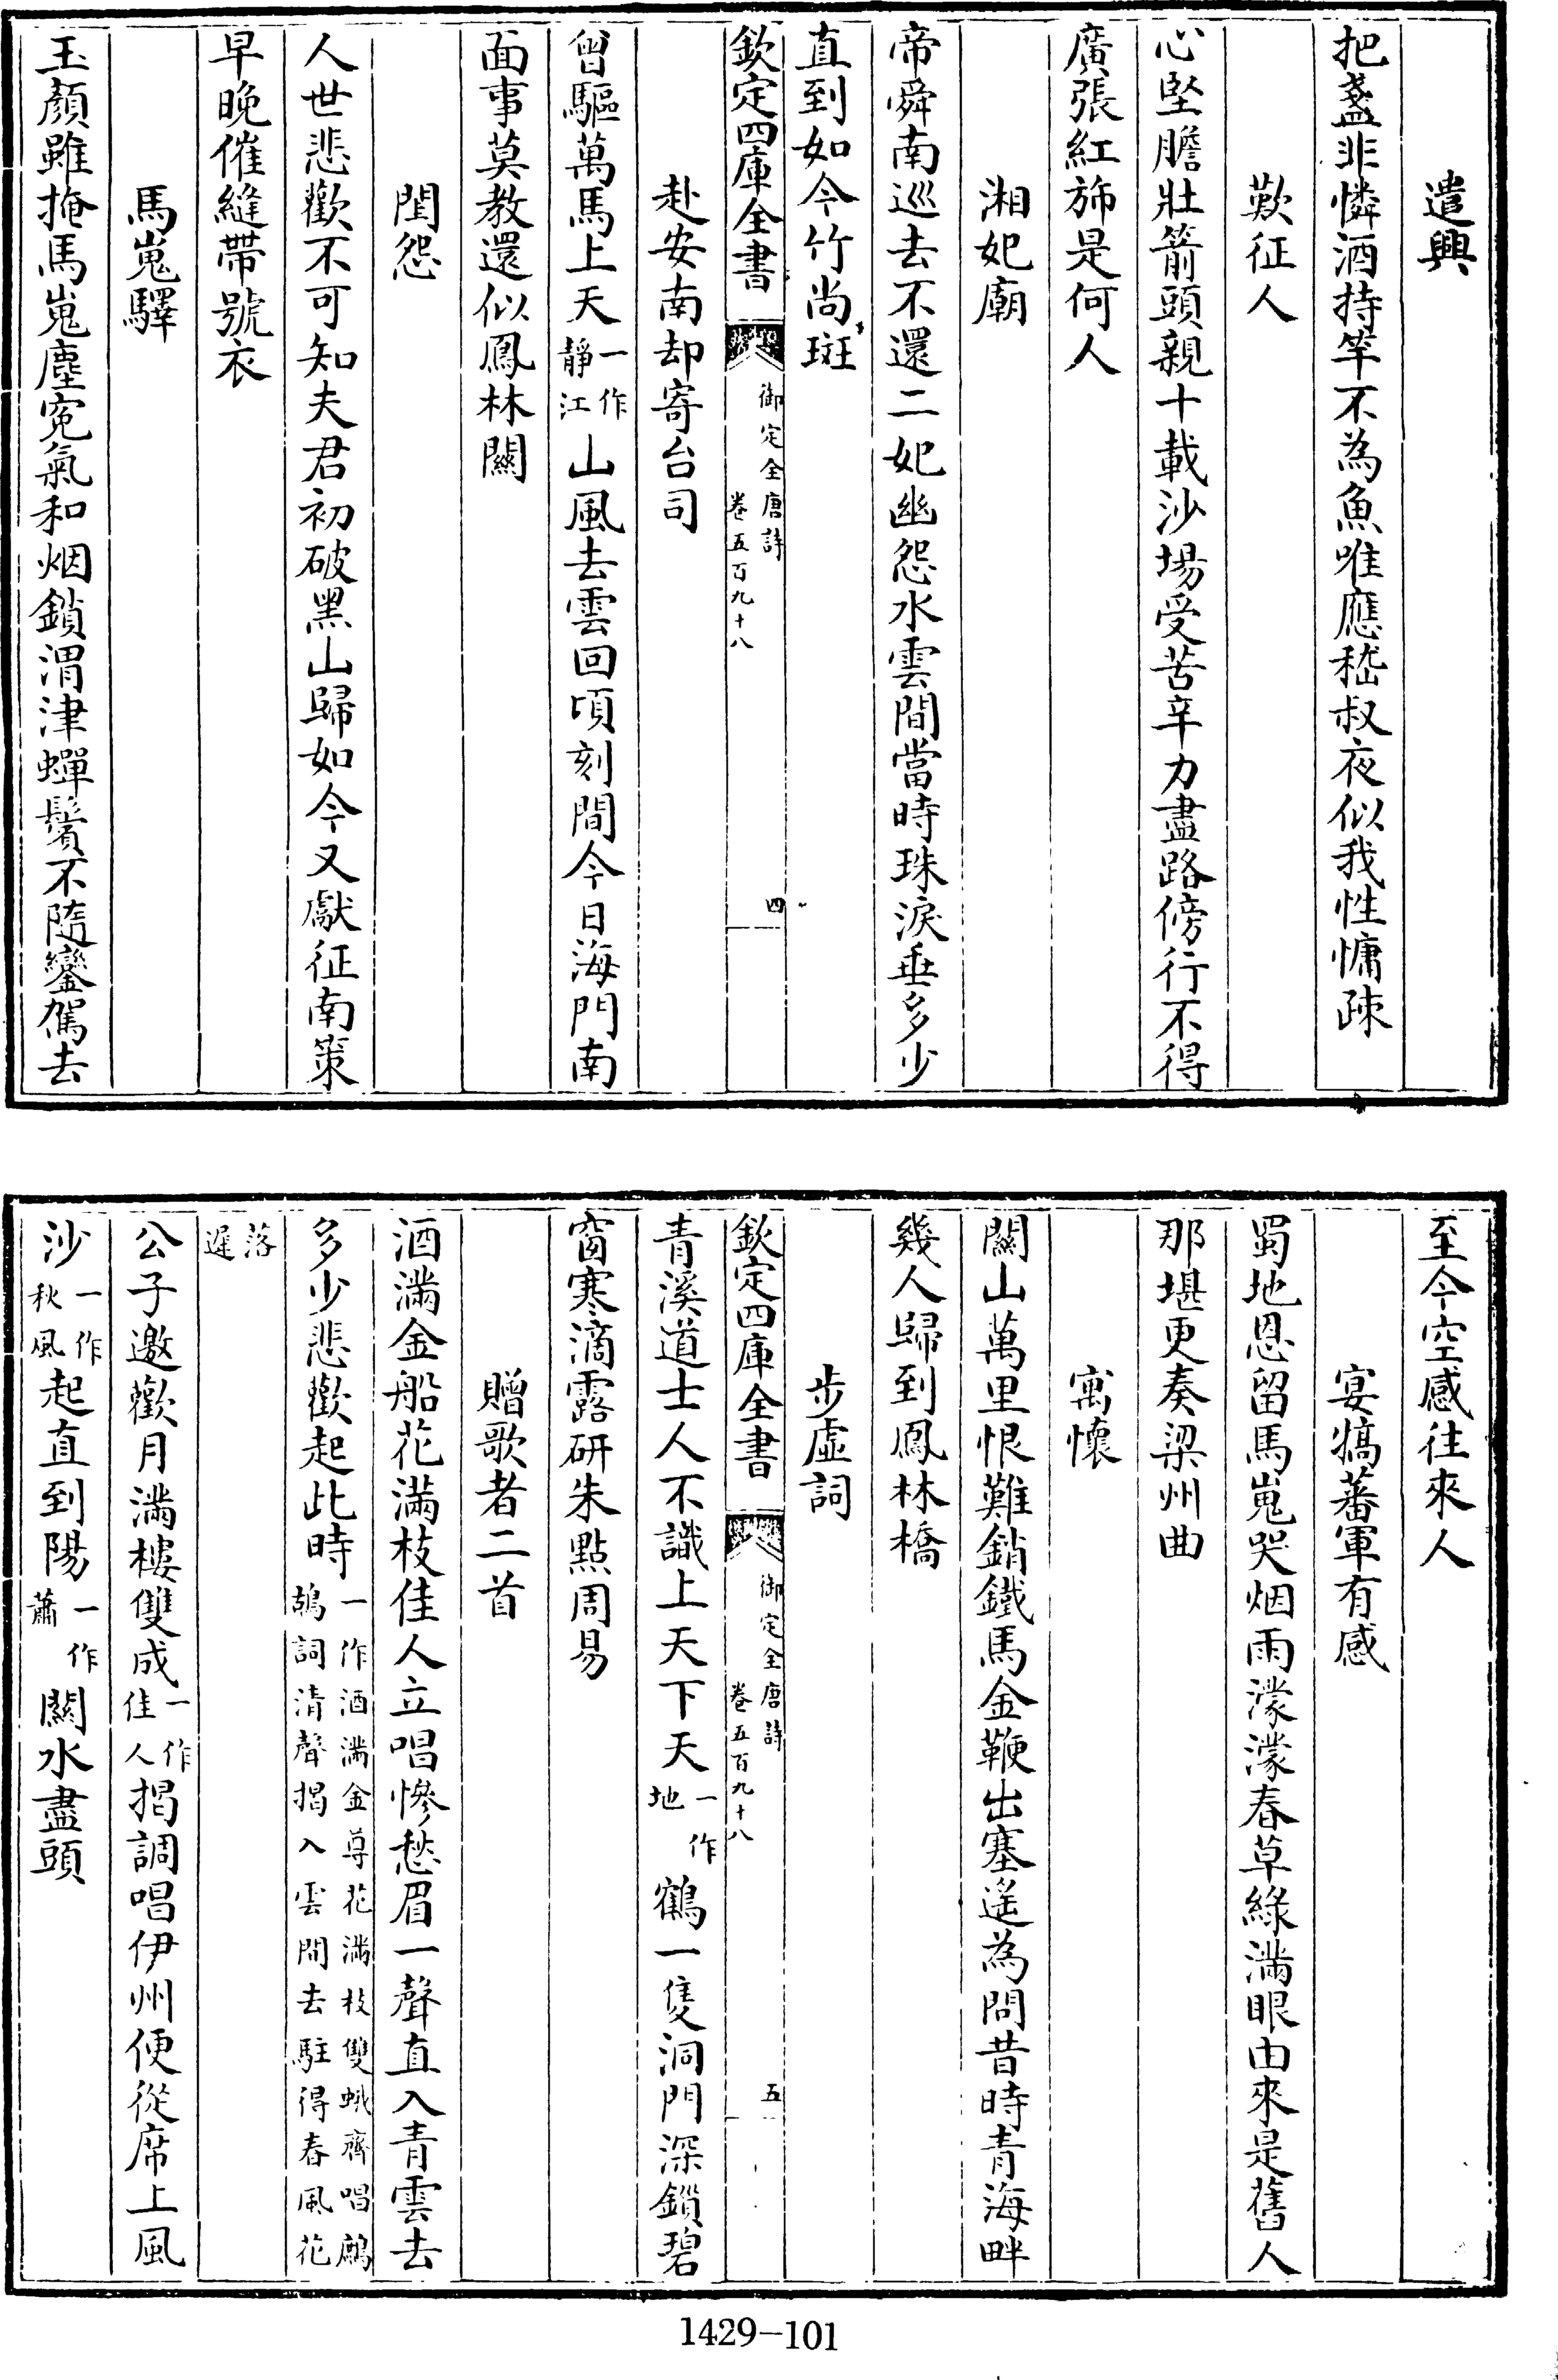 遣興
把盞非憐酒持竿不為魚唯應嵇叔夜似我性慵疎
歎征人
心堅膽壯箭頭親十載沙場受苦辛力盡路傍行不得
廣張紅旆是何人
湘妃廟
帝舜南巡去不還二妃幽怨水雲間當時珠淚垂多少
直到如今竹尚斑
欽定四庫全書
御定全唐詩
卷五百九十八
四
赴安南却寄台司
曾驅萬馬上天一作靜江山風去雲回頃刻間今日海門南
面事莫教還似鳳林關
閨怨
人世悲歡不可知夫君初破黑山歸如今又獻征南策
早晚催縫帶號衣
馬嵬驛
玉顏雖掩馬嵬塵寃氣和烟鎖渭津蟬鬢不隨鑾駕去
至今空感往來人
宴犒蕃軍有感
蜀地恩留馬嵬哭烟雨濛濛春草綠滿眼由來是舊人
那堪更奏梁州曲
寓懷
關山萬里恨難銷鐵馬金鞭出塞遙為問昔時青海畔
幾人歸到鳳林橋
步虛詞
欽定四庫全書
御定全唐詩
卷五百九十八
五
青溪道士人不識上天下天一作地鶴一隻洞門深鎖碧
窗寒滴露研朱點周易
贈歌者二首
酒滿金船花滿枝佳人立唱慘愁眉一聲直入青雲去
多少悲歡起此時一作酒滿金尊花滿枝雙蛾齊唱鷓鴣詞清聲揭入雲間去駐得春風花
落遲
公子邀歡月滿樓雙成一作佳人揭調唱伊州便從席上風
沙一作秋風起直到陽一作蕭關水盡頭
1429-101